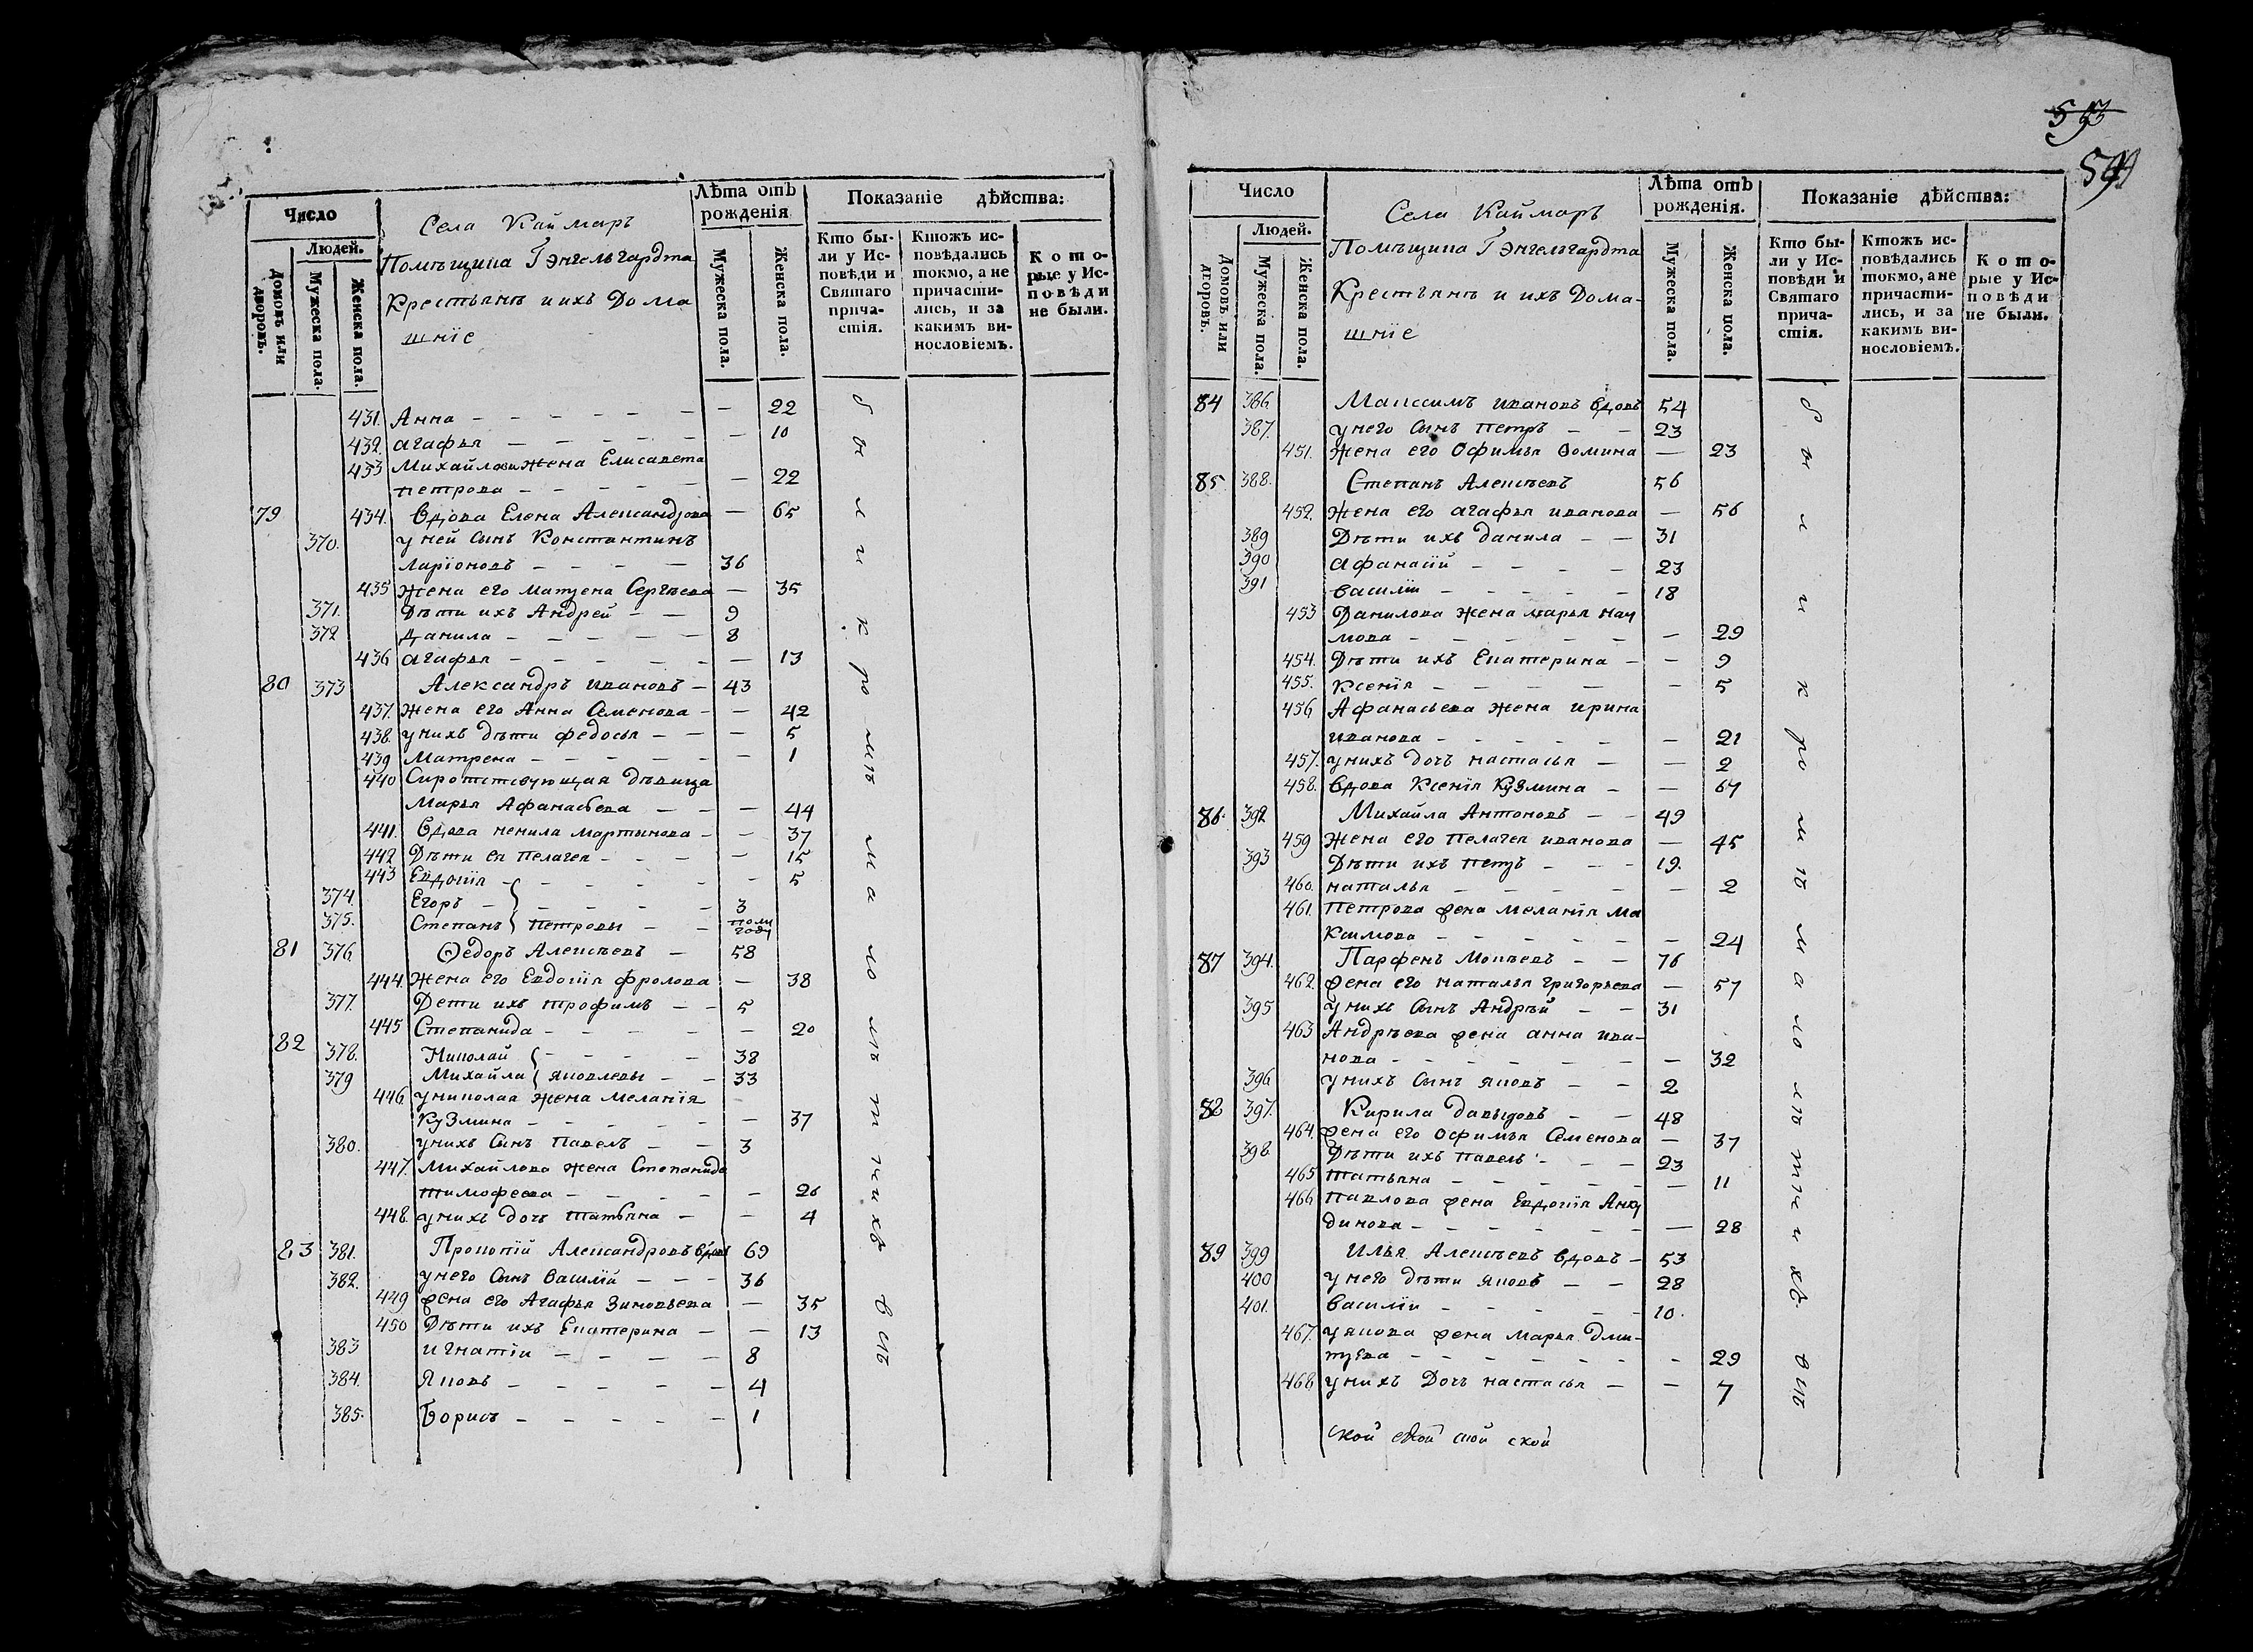 593
594
Число
Лѣта отъ рожденія
Показаніе дѣйства:
Села Каймаръ
Помѣщика Гэнгельгардта
Крестьянѣ и ихъ Дома
шнiе
Людей.
Домовъ или дворовъ.
Мужеска пола.
Женска пола.
Мужеска пола.
Женска пола.
Кто бы-
ли у Ис-
повѣди и
Святаго
прича-
стія.
Ктожъ ис-
повѣдались
токмо, а не
причасти-
лись, и за
какимъ ви-
нословіемъ.
Кото-
рые у Ис-
повѣди
не были.
431. Анна — 22
432. агафья — 10
433 Михайлова жена Елисавета
петрова — 22
79 434. Вдова Елена Александрова — 65
370. у ней сынъ Константинъ
Ларіоновъ — 36
435 жена его Матрена Сергѣева — 35
371. Дѣти ихъ Андрей — 9
372 Данила — 8
436 агафья — 13
80 373 Александръ ивановъ — 43
437. жена его Анна Семенова — 42
438. у нихъ дѣти федосья — 5
439 Матрена — 1
440 Сиротствующая дѣвица
Марья Афанасьева — 44
441. Вдова ненила мартынова — 37
442 Дѣти ея пелагея — 15
443 Евдокія — 5
374. Егоръ — 3
375. Степанъ петровы — полу году
81 376 Ѳедоръ Алексѣевъ — 58
444. жена его Евдокія фролова — 38
377. Дети ихъ трофимъ — 5
445 Степанида — 20
82 378. Николай — 38
379 Михайла яковлевы — 33
446 у николая жена меланія
Кузмина — 37
380. у нихъ сынъ павелъ — 3
447. Михайлова жена Степанида
тимофеева — 26
448. у нихъ дочь татьяна — 4
83 381. Прокопій Александровъ вдовъ 69
382. у него сынъ василій — 36
449 жена его Агафья Зиновьева — 35
450 Дѣти ихъ Екатерина — 13
383 игнатіи — 8
384. Яковъ — 4
385. Борисъ — 1
были к ромѣ мало лѣтнихъ всѣ
Число
Лѣта отъ рожденія.
Показаніе дѣйства:
Села Каймаръ
Помѣщика Гэнгельгардта
Крестьянѣ и ихъ Дома-
шнiе
Людей.
Домовъ или дворовъ.
Мужеска пола.
Женска пола.
Мужеска пола.
Женска пола.
Кто бы-
ли у Ис-
повѣди и
Святаго
прича-
стія.
Ктожъ ис-
повѣдались
токмо, а не
причасти-
лись, и за
какимъ ви-
нословіемъ.
Кото-
рые у Ис-
повѣди
не были.
84 386. Максимъ ивановъ вдовъ 54
387. у него сынъ петръ — 23
451. жена его Офимья Ѳомина — 23
85 388. Степанъ Алексѣевъ 56
452. жена его агафья иванова — 56
389 Дѣти ихъ данила — 31
390 афанасій — 23
391 василіи — 18
453 Данилова жена марья нау
мова — 29
454. Дѣти ихъ Екатерина — 9
455. ксенія — 5
456 Афанасьева жена ирина
иванова — 21
457. у нихъ дочь настасья — 2
458. вдова Ксенія Кузмина — 67
86. 392 Михайла Антоновъ — 49
459 жена его пелагея иванова — 45
393 Дѣти ихъ петръ — 19.
460. наталья — 2
461. петрова жена меланія ма
ксимова — 24
87 394. Парфенъ Мокѣевъ — 76
462. жена его наталья григорьева — 57
395 у нихъ сынъ Андрѣй — 31
463 Андрѣева жена анна ива-
нова — 32
396 у нихъ сынъ яковъ — 2
82 397. Кирила давыдовъ — 48
464. жена его офимья Семенова — 37
398 Дѣти ихъ павелъ — 23
465 татьяна — 11
466 павлова жена Евдокія Анку
динова — 28
89 399 илья Алексѣевъ вдовъ — 53
400 у него дѣти яковъ — 28
401. василіи — 10.
467. у якова жена марья дми-
трева — 29
468 у нихъ Дочь настасья — 7
были к ромѣ мало лѣтнихъ всѣ
ской ской ской ской